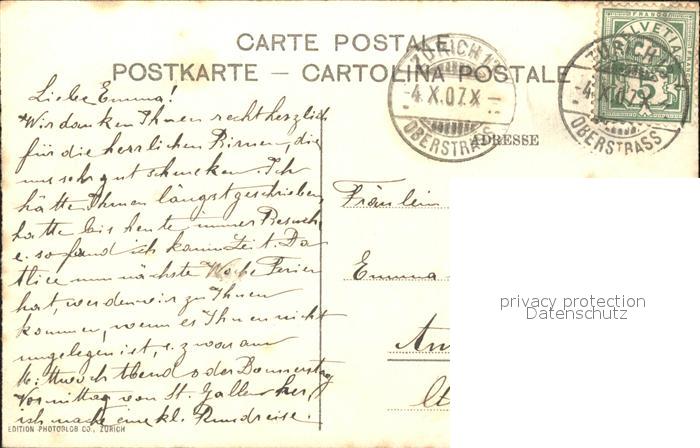 CARTE POSTALE
POSTKARTE — CARTOLINA POSTALE
ZÜRICH 12
4.X.07.X
OBERSTRASS
FRANCO
HELVETIA
5
ZÜRICH 12
4.X.07.X
OBERSTRASS
ADRESSE
Liebe Emma!
Wir danken Ihnen recht herzlich
für die herrlichen Birnen, die
uns sehr gut schmecken. Ich
hätte Ihnen längst geschrieben
hatte bis heute immer Besuch
u. so fand ich kaum Zeit. Da
Alice nun nächste Woche Ferien
hat, werden wir zu Ihnen
kommen, wenn es Ihnen nicht
ungelegen ist, u. zwar am
Mittwoch Abend oder Donnerstag
Vormittag von St. Gallen her
ich mache eine kl. Rundreise.
Fräulein
Emma
EDITION PHOTOGLOB CO., ZÜRICH
privacy protection
Datenschutz